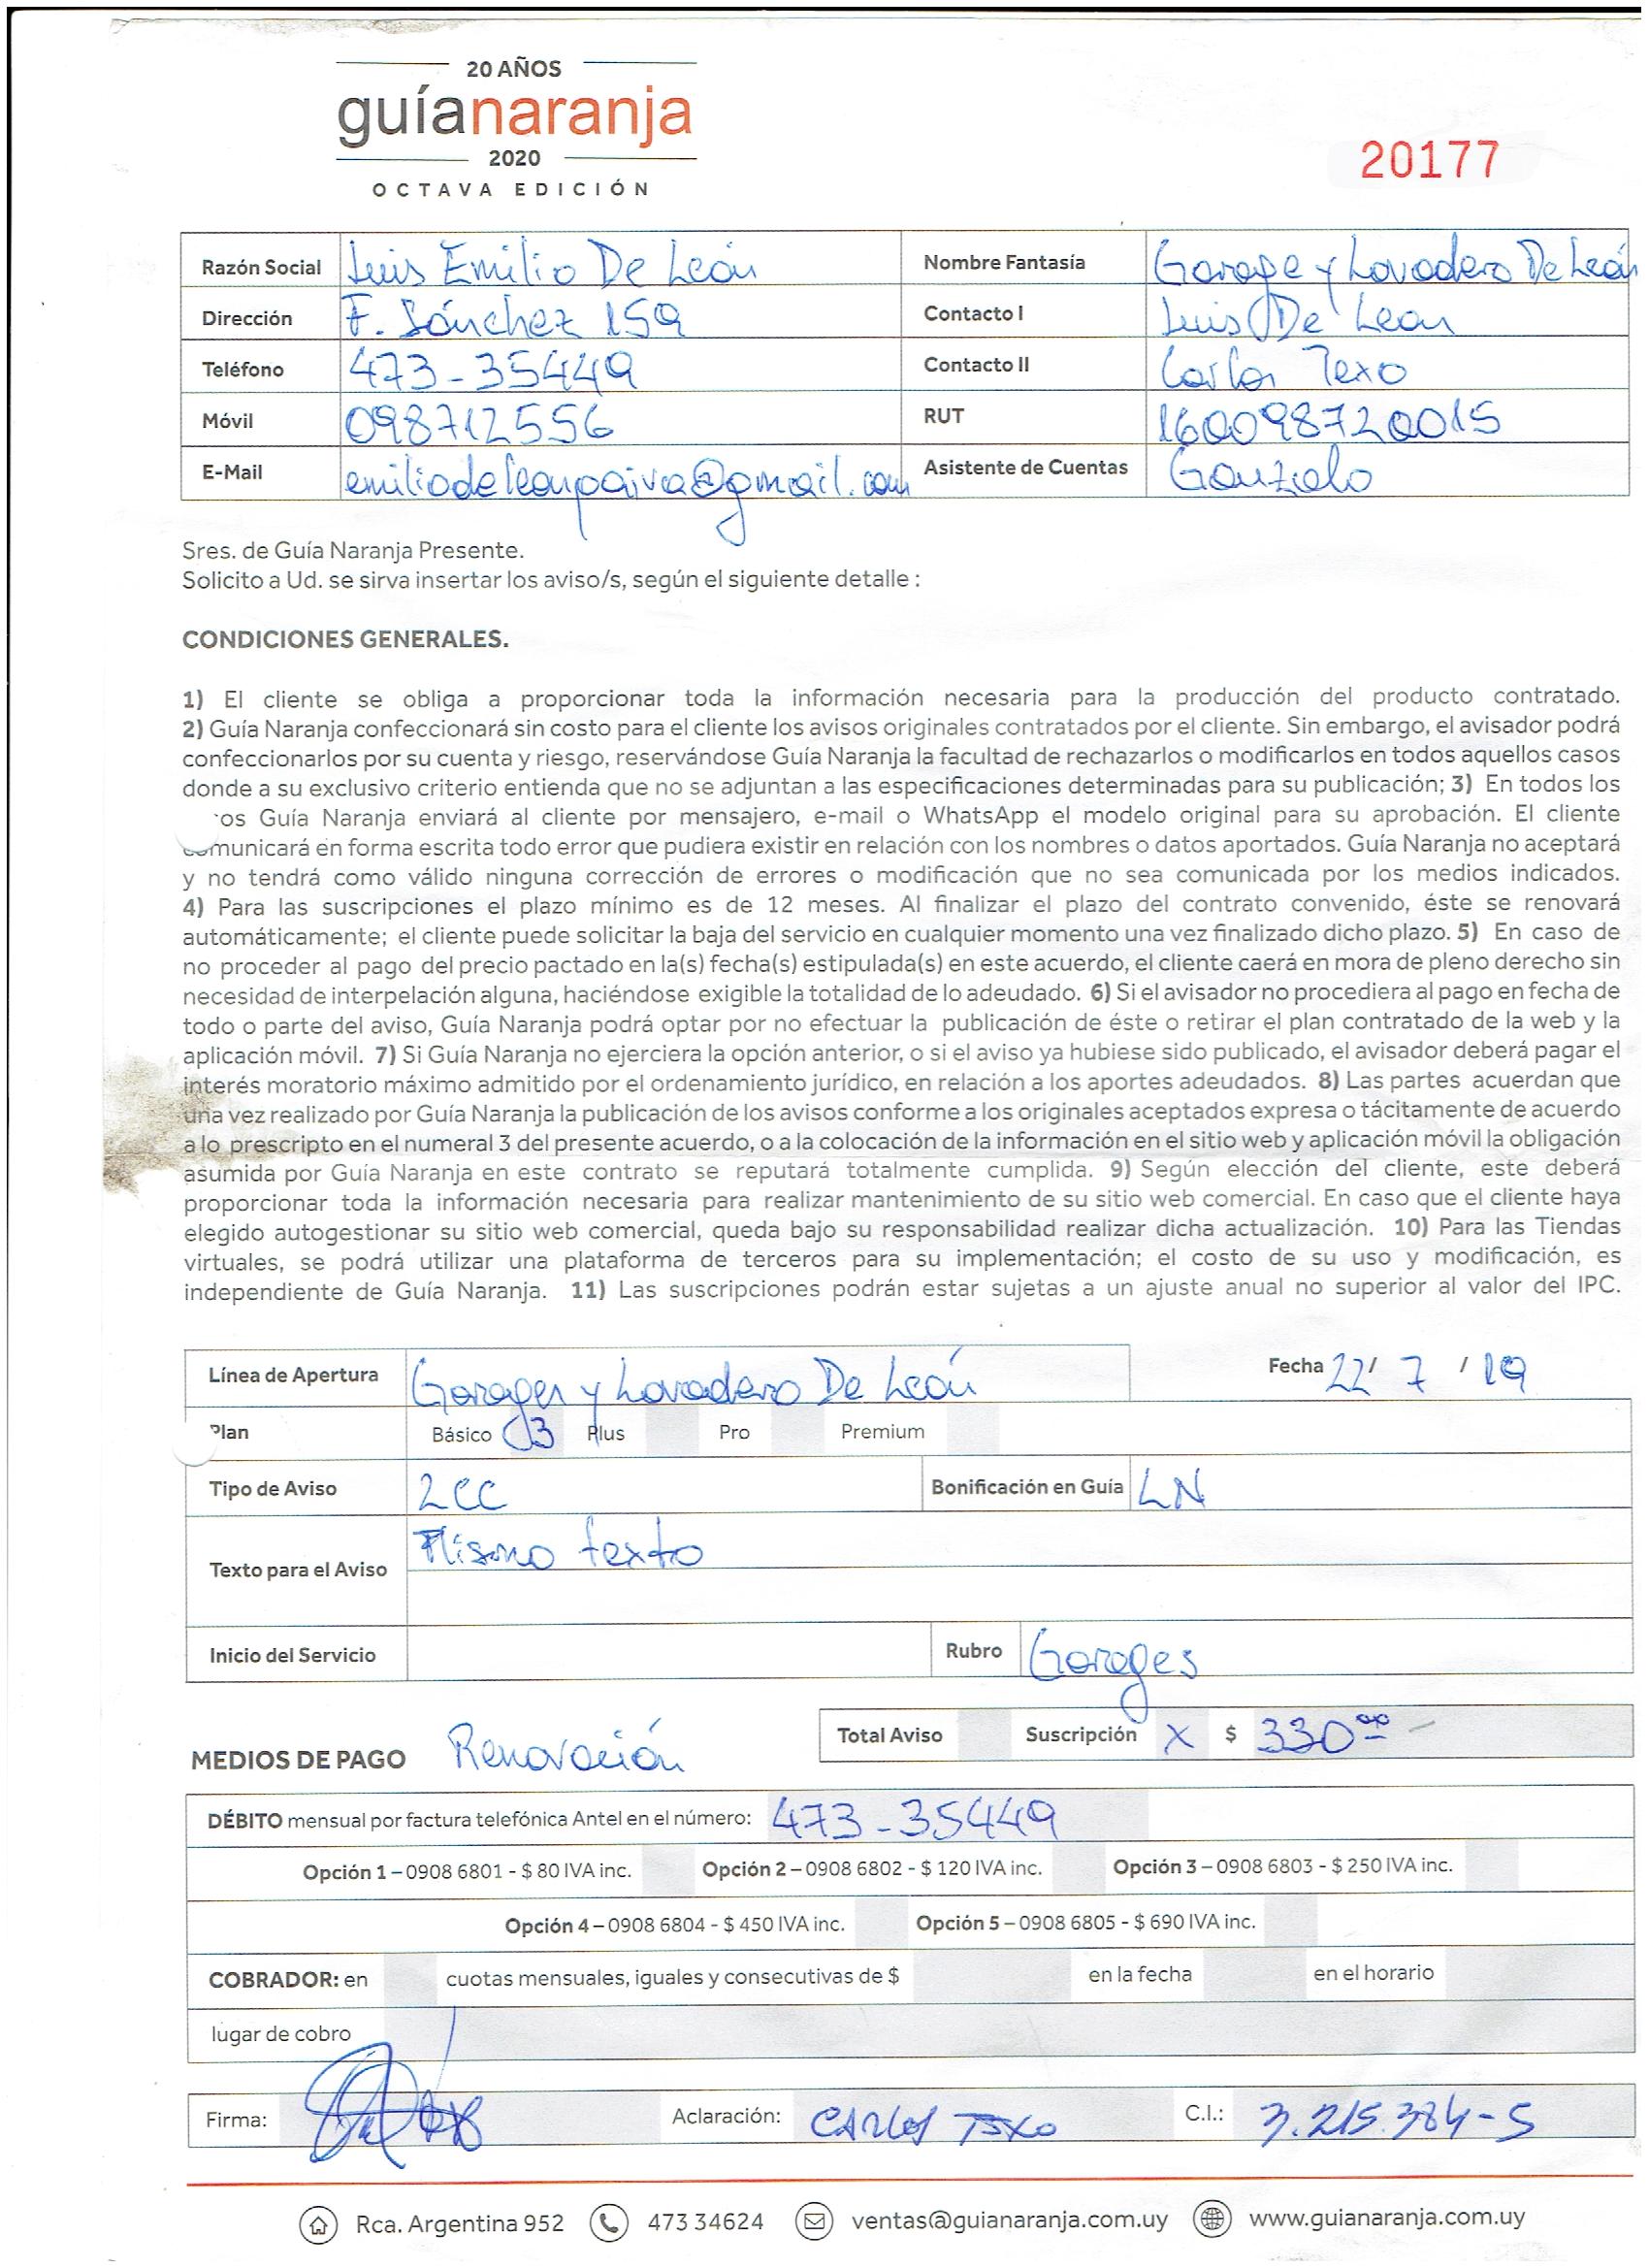 20 AÑOS
guíanaranja
2020
OCTAVA EDICIÓN
20177
Razón Social Luis Emilio De León Nombre Fantasía Garage y Lavadero De León
Dirección F. Sánchez 159 Contacto I Luis De Leon
Teléfono 473-35449 Contacto II Carlos Texo
Móvil 098712556 RUT 160098720015
E-Mail emiliodeleonpaiva@gmail.com Asistente de Cuentas Gonzalo
Sres. de Guía Naranja Presente.
Solicito a Ud. se sirva insertar los aviso/s, según el siguiente detalle :
CONDICIONES GENERALES.
1) El cliente se obliga a proporcionar toda la información necesaria para la producción del producto contratado.
2) Guía Naranja confeccionará sin costo para el cliente los avisos originales contratados por el cliente. Sin embargo, el avisador podrá
confeccionarlos por su cuenta y riesgo, reservándose Guía Naranja la facultad de rechazarlos o modificarlos en todos aquellos casos
donde a su exclusivo criterio entienda que no se adjuntan a las especificaciones determinadas para su publicación; 3) En todos los
os Guía Naranja enviará al cliente por mensajero, e-mail o WhatsApp el modelo original para su aprobación. El cliente
comunicará en forma escrita todo error que pudiera existir en relación con los nombres o datos aportados. Guía Naranja no aceptará
y no tendrá como válido ninguna corrección de errores o modificación que no sea comunicada por los medios indicados.
4) Para las suscripciones el plazo mínimo es de 12 meses. Al finalizar el plazo del contrato convenido, éste se renovará
automáticamente; el cliente puede solicitar la baja del servicio en cualquier momento una vez finalizado dicho plazo. 5) En caso de
no proceder al pago del precio pactado en la(s) fecha(s) estipulada(s) en este acuerdo, el cliente caerá en mora de pleno derecho sin
necesidad de interpelación alguna, haciéndose exigible la totalidad de lo adeudado. 6) Si el avisador no procediera al pago en fecha de
todo o parte del aviso, Guía Naranja podrá optar por no efectuar la publicación de éste o retirar el plan contratado de la web y la
aplicación móvil. 7) Si Guía Naranja no ejerciera la opción anterior, o si el aviso ya hubiese sido publicado, el avisador deberá pagar el
interés moratorio máximo admitido por el ordenamiento jurídico, en relación a los aportes adeudados. 8) Las partes acuerdan que
una vez realizado por Guía Naranja la publicación de los avisos conforme a los originales aceptados expresa o tácitamente de acuerdo
a lo prescripto en el numeral 3 del presente acuerdo, o a la colocación de la información en el sitio web y aplicación móvil la obligación
asumida por Guía Naranja en este contrato se reputará totalmente cumplida. 9) Según elección del cliente, este deberá
proporcionar toda la información necesaria para realizar mantenimiento de su sitio web comercial. En caso que el cliente haya
elegido autogestionar su sitio web comercial, queda bajo su responsabilidad realizar dicha actualización. 10) Para las Tiendas
virtuales, se podrá utilizar una plataforma de terceros para su implementación; el costo de su uso y modificación, es
independiente de Guía Naranja. 11) Las suscripciones podrán estar sujetas a un ajuste anual no superior al valor del IPC.
Línea de Apertura Garages y Lavadero De León Fecha 22/ 7 / 19
Plan Básico C3 Plus Pro Premium
Tipo de Aviso 2CC Bonificación en Guía LN
Texto para el Aviso Mismo texto
Inicio del Servicio Rubro Garages
MEDIOS DE PAGO Renovación Total Aviso Suscripción X $ 330 00 -
DÉBITO mensual por factura telefónica Antel en el número: 473-35449
Opción 1 – 0908 6801 - $ 80 IVA inc. Opción 2 – 0908 6802 - $ 120 IVA inc. Opción 3 – 0908 6803 - $ 250 IVA inc.
Opción 4 – 0908 6804 - $ 450 IVA inc. Opción 5 – 0908 6805 - $ 690 IVA inc.
COBRADOR: en cuotas mensuales, iguales y consecutivas de $ en la fecha en el horario
lugar de cobro
Firma: Aclaración: CARLOS TEXO C.I.: 3.215.384-5
Rca. Argentina 952 473 34624 ventas@guianaranja.com.uy www.guianaranja.com.uy